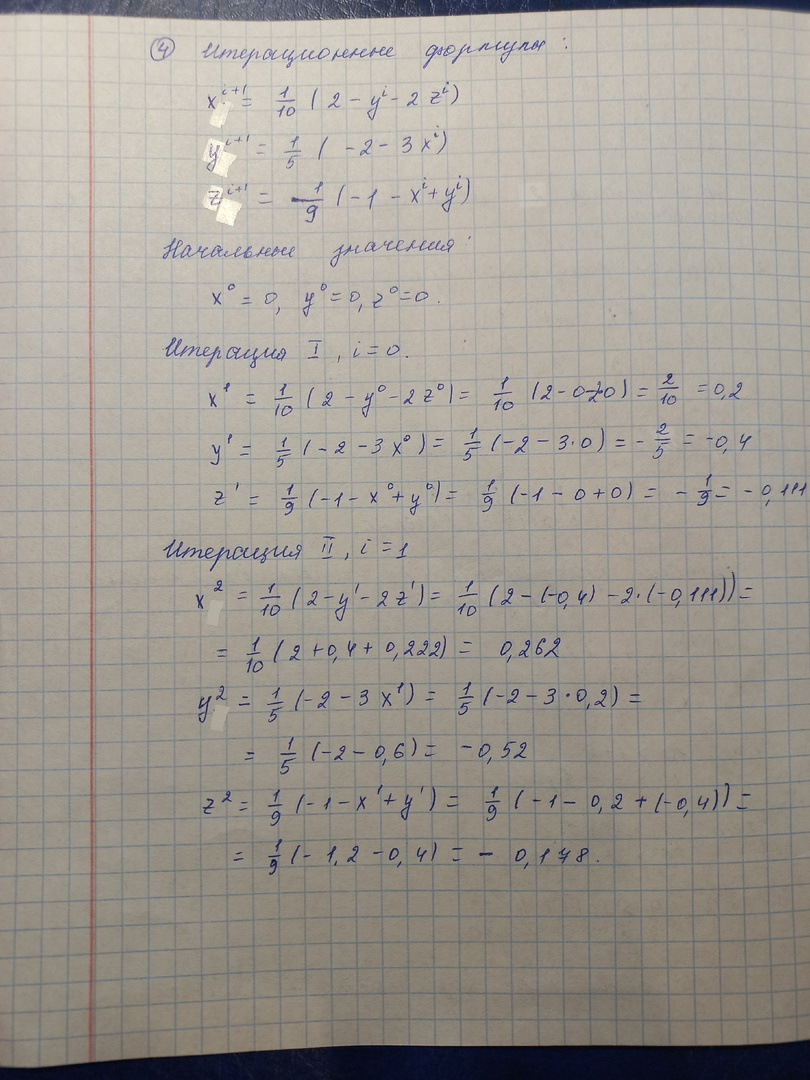 ④ Итерационные формулы:
xⁱ⁺¹ = 1/10 (2 - yⁱ - 2zⁱ)
yⁱ⁺¹ = 1/5 (-2 - 3xⁱ)
zⁱ⁺¹ = 1/9 (-1 - xⁱ + yⁱ)
Начальные значения:
x⁰ = 0, y⁰ = 0, z⁰ = 0.
Итерация I, i = 0.
x¹ = 1/10 (2 - y⁰ - 2z⁰) = 1/10 (2 - 0 - 2·0) = 2/10 = 0,2
y¹ = 1/5 (-2 - 3x⁰) = 1/5 (-2 - 3·0) = -2/5 = -0,4
z¹ = 1/9 (-1 - x⁰ + y⁰) = 1/9 (-1 - 0 + 0) = -1/9 = -0,111
Итерация II, i = 1
x² = 1/10 (2 - y¹ - 2z¹) = 1/10 (2 - (-0,4) - 2·(-0,111)) =
= 1/10 (2 + 0,4 + 0,222) = 0,262
y² = 1/5 (-2 - 3x¹) = 1/5 (-2 - 3·0,2) =
= 1/5 (-2 - 0,6) = -0,52
z² = 1/9 (-1 - x¹ + y¹) = 1/9 (-1 - 0,2 + (-0,4)) =
= 1/9 (-1,2 - 0,4) = -0,178.